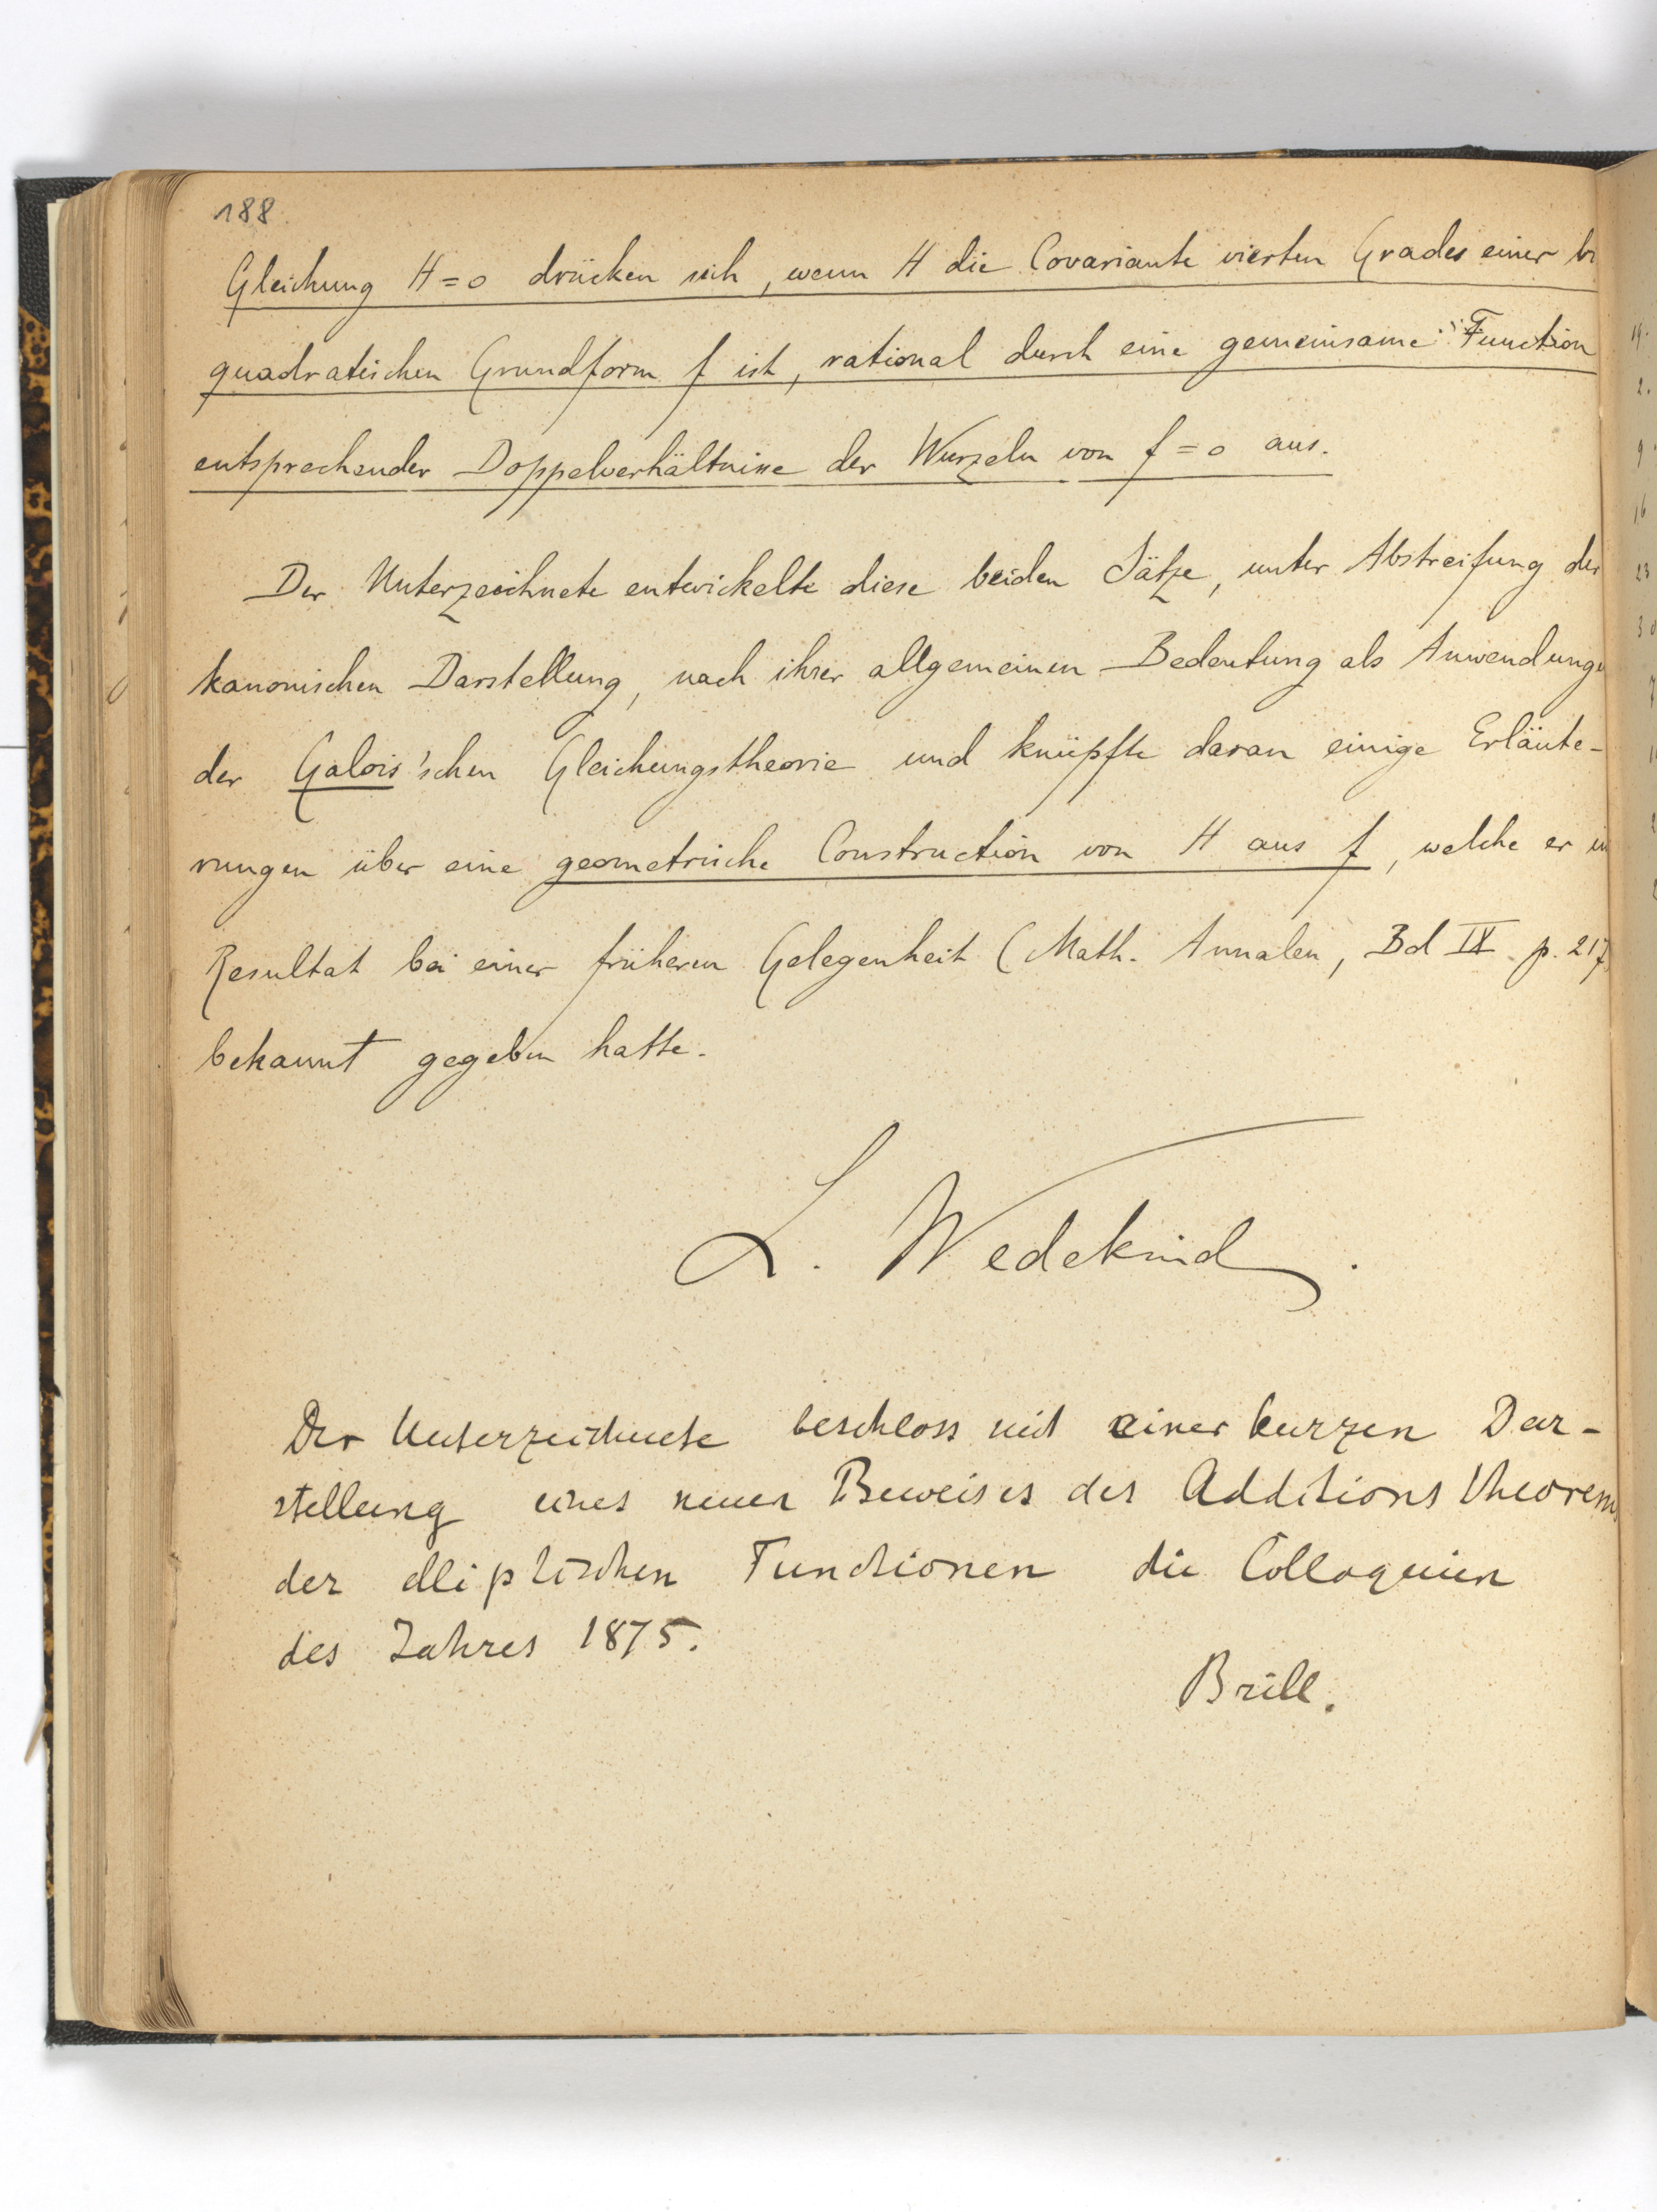 188.
Gleichung H=0 drücken sich, wenn H die Covariante vierten Grades einer bi
quadratischen Grundform f ist, rational durch eine gemeinsame Function
entsprechender Doppelverhältnisse der Wurzeln von f=0 aus.
Der Unterzeichnete entwickelte diese beiden Sätze, unter Abstreifung der
kanonischen Darstellung, nach ihrer allgemeinen Bedeutung als Anwendunge
der Galois'schen Gleichungstheorie und knüpfte daran einige Erläute-
rungen über eine geometrische Construction von H aus f, welche er im
Resultat bei einer früheren Gelegenheit (Math. Annalen, Bd IX p. 217
bekannt gegeben hatte.
L. Wedekind.
Der Unterzeichnete beschloss mit einer kurzen Dar-
stellung eines neuen Beweises des Additions Theorems
der elliptischen Functionen die Colloquien
des Jahres 1875.
Brill.